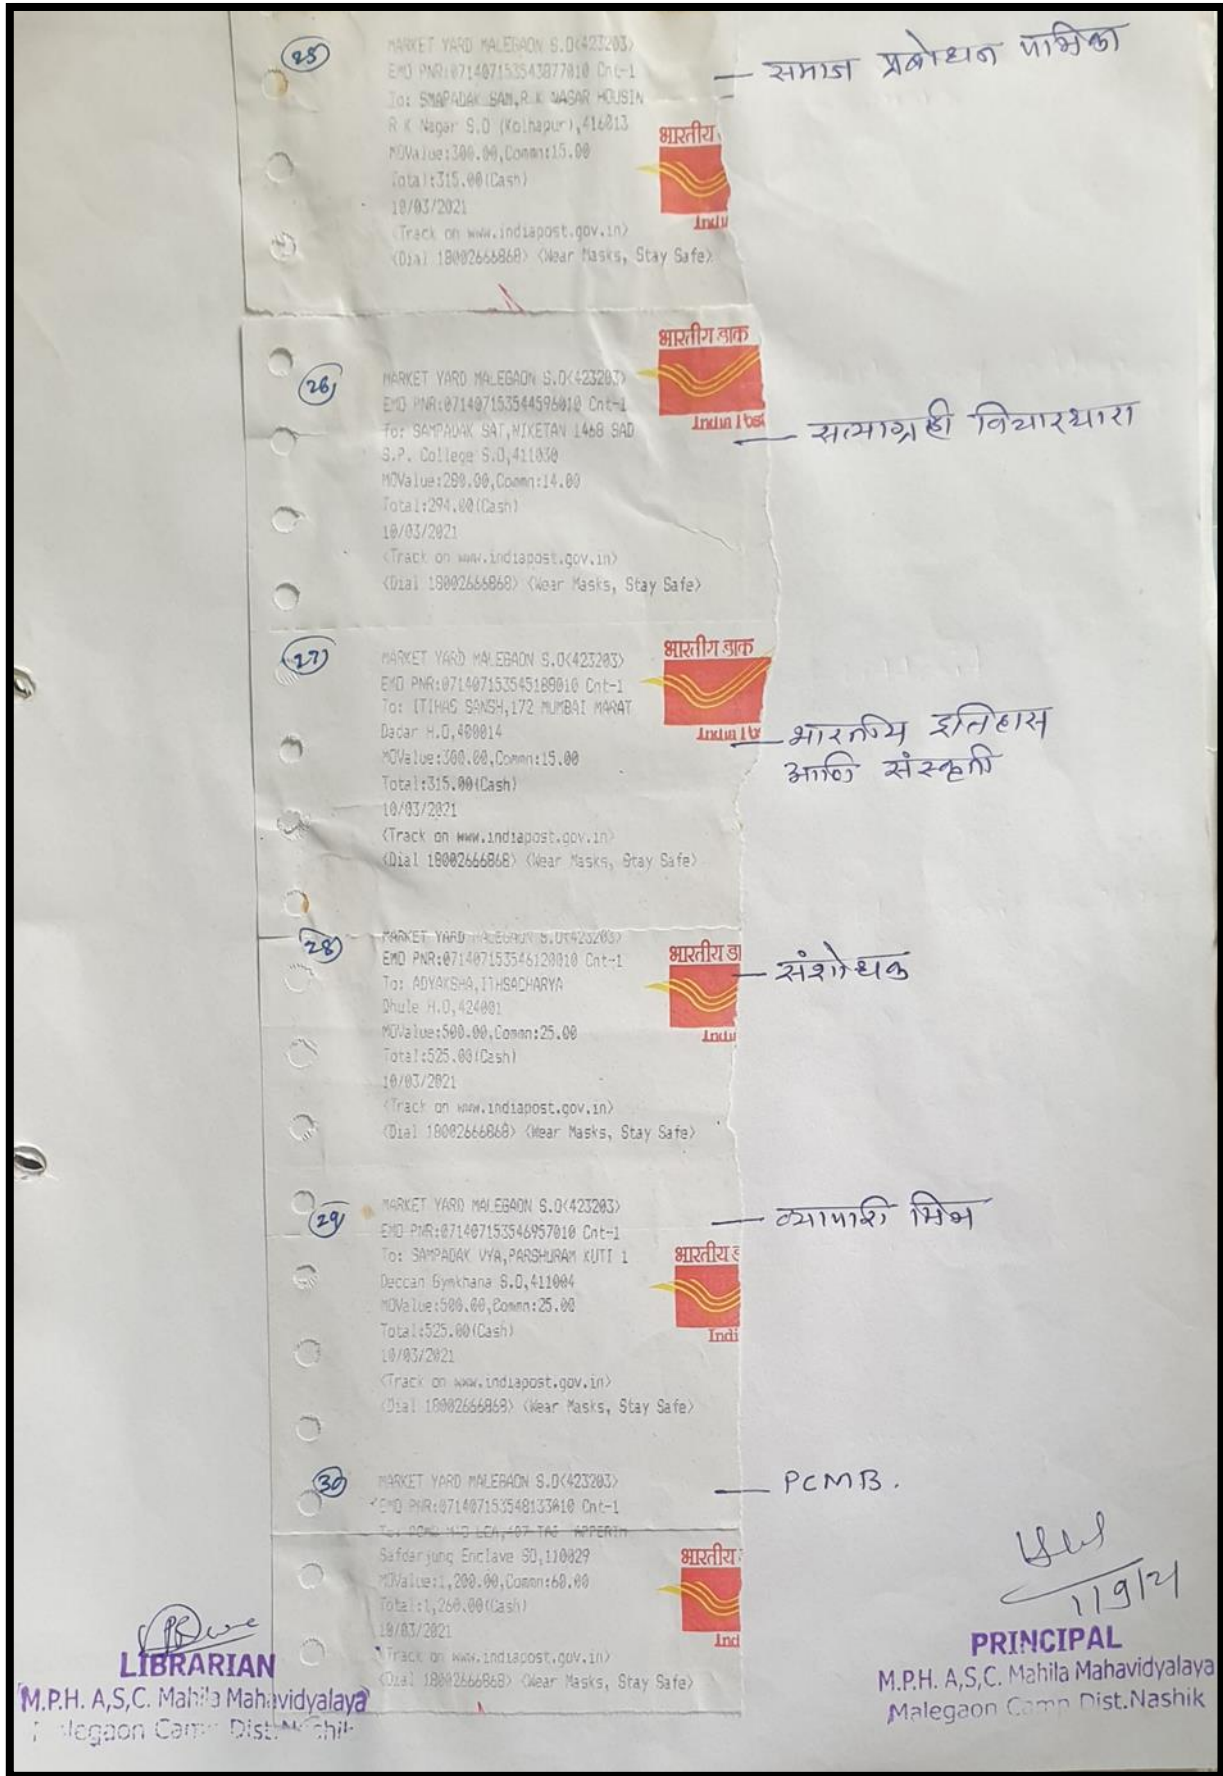 25
MARKET YARD MALEGAON S.O<423203>
EMO PNR:071407153543877010 Cnt-1
To: SMAPADAK SAM,R K NAGAR HOUSIN
R K Nagar S.O (Kolhapur),416013
MOValue:300.00,Commn:15.00
Total:315.00(Cash)
10/03/2021
<Track on www.indiapost.gov.in>
<Dial 18002666868> <Wear Masks, Stay Safe>
भारतीय
Indi
समाज प्रबोधन पत्रिका
26
भारतीय डाक
India Post
MARKET YARD MALEGAON S.O<423203>
EMO PNR:071407153544596010 Cnt-1
To: SAMPADAK SAT,NIKETAN 1468 SAD
S.P. College S.O,411030
MOValue:280.00,Commn:14.00
Total:294.00(Cash)
10/03/2021
<Track on www.indiapost.gov.in>
<Dial 18002666868> <Wear Masks, Stay Safe>
सत्याग्रही विचारधारा
27
भारतीय डाक
India Po
MARKET YARD MALEGAON S.O<423203>
EMO PNR:071407153545189010 Cnt-1
To: ITIHAS SANSH,172 MUMBAI MARAT
Dadar H.O,400014
MOValue:300.00,Commn:15.00
Total:315.00(Cash)
10/03/2021
<Track on www.indiapost.gov.in>
<Dial 18002666868> <Wear Masks, Stay Safe>
भारतीय इतिहास
आणि संस्कृती
28
MARKET YARD MALEGAON S.O<423203>
EMO PNR:071407153546120010 Cnt-1
To: ADYAKSHA,ITHSACHARYA
Dhule H.O,424001
MOValue:500.00,Commn:25.00
Total:525.00(Cash)
10/03/2021
<Track on www.indiapost.gov.in>
<Dial 18002666868> <Wear Masks, Stay Safe>
भारतीय डा
Indi
संशोधक
29
MARKET YARD MALEGAON S.O<423203>
EMO PNR:071407153546957010 Cnt-1
To: SAMPADAK VYA,PARSHURAM KUTI 1
Deccan Gymkhana S.O,411004
MOValue:500.00,Commn:25.00
Total:525.00(Cash)
10/03/2021
<Track on www.indiapost.gov.in>
<Dial 18002666868> <Wear Masks, Stay Safe>
भारतीय ड
Indi
व्यापारी मित्र
30
MARKET YARD MALEGAON S.O<423203>
EMO PNR:071407153548133010 Cnt-1
Safdarjung Enclave SO,110029
MOValue:1,200.00,Commn:60.00
Total:1,260.00(Cash)
10/03/2021
<Track on www.indiapost.gov.in>
<Dial 18002666868> <Wear Masks, Stay Safe>
भारतीय
Ind
PCMB.
LIBRARIAN
M.P.H. A,S,C. Mahila Mahavidyalaya
Malegaon Camp Dist.Nashik
1/9/21
PRINCIPAL
M.P.H. A,S,C. Mahila Mahavidyalaya
Malegaon Camp Dist.Nashik